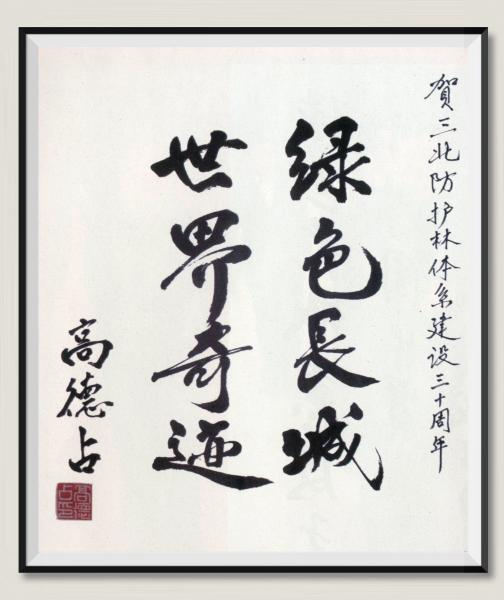 贺三北防护林体系建设三十周年
绿色長城
世界奇迹
高德占
高德占印